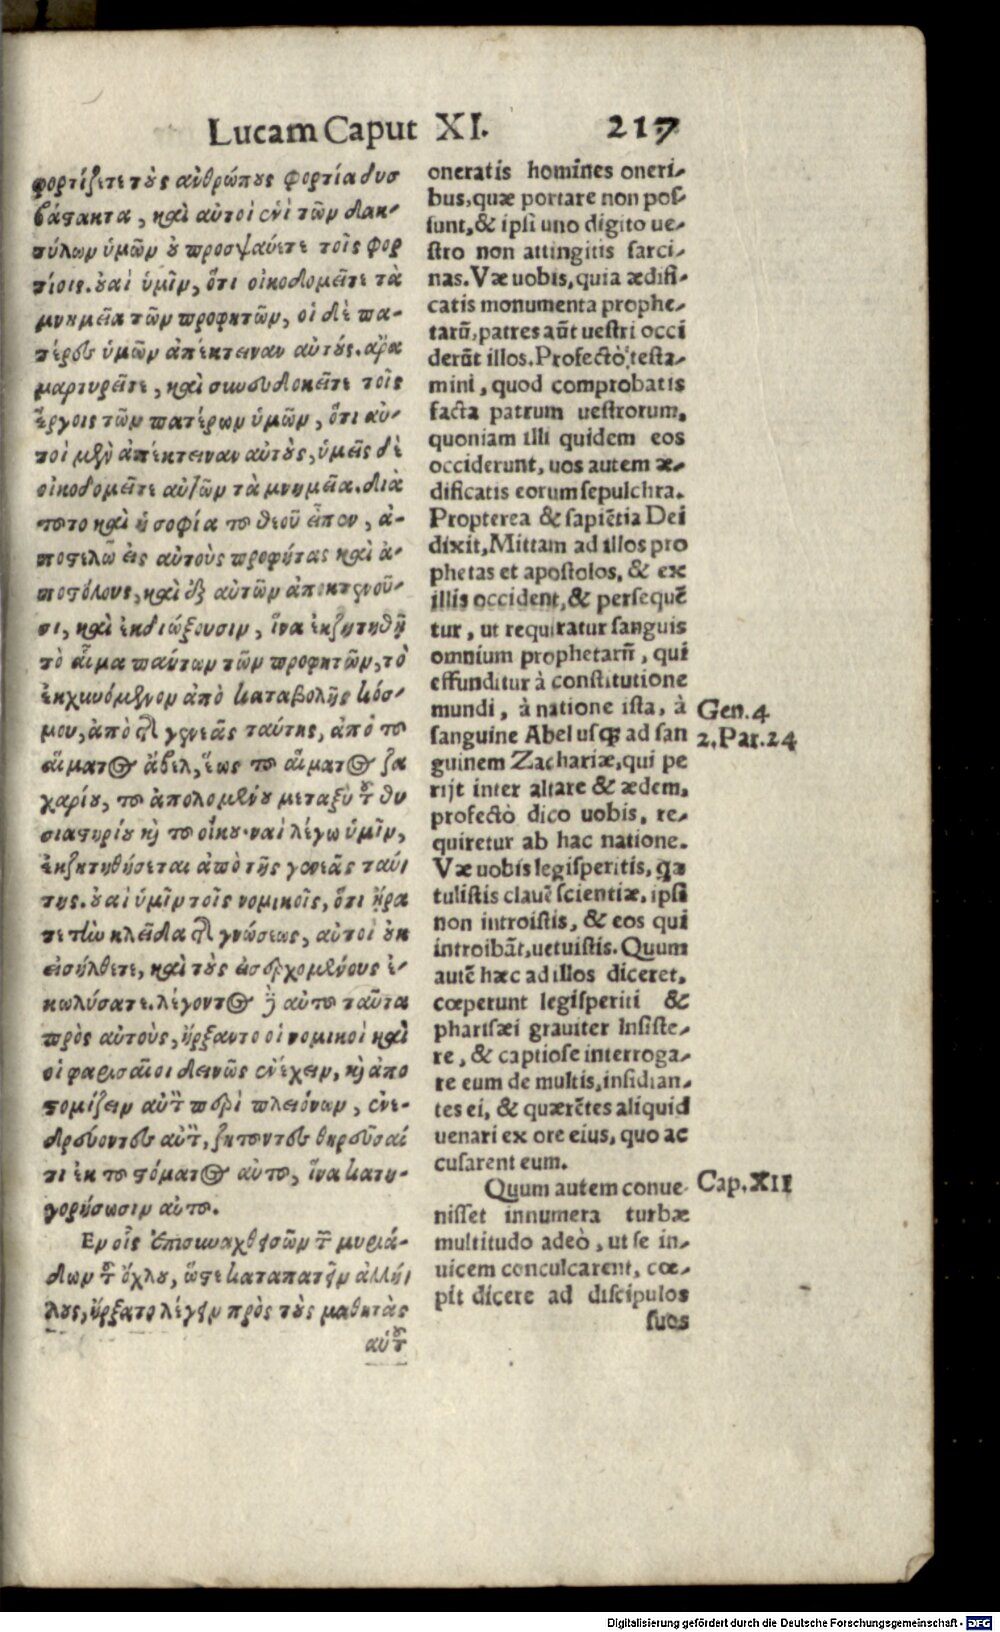 Lucam Caput XI. 217
φορτίζετε τοὺς ἀνθρώπους φορτία δυσ
βάστακτα, καὶ αὐτοὶ ἑνὶ τῶν δακ-
τύλων ὑμῶν οὐ προσψαύετε τοῖς φορ
τίοις. οὐαὶ ὑμῖν, ὅτι οἰκοδομεῖτε τὰ
μνημεῖα τῶν προφητῶν, οἱ δὲ πα-
τέρες ὑμῶν ἀπέκτειναν αὐτούς. ἄρα
μαρτυρεῖτε, καὶ συνευδοκεῖτε τοῖς
ἔργοις τῶν πατέρων ὑμῶν, ὅτι αὐ-
τοὶ μὲν ἀπέκτειναν αὐτοὺς, ὑμεῖς δὲ
οἰκοδομεῖτε αὐτῶν τὰ μνημεῖα. διὰ
τοῦτο καὶ ἡ σοφία τοῦ θεοῦ εἶπεν, ἀ-
ποστελῶ εἰς αὐτοὺς προφήτας καὶ ἀ-
ποστόλους, καὶ ἐξ αὐτῶν ἀποκτενοῦ-
σι, καὶ ἐκδιώξουσιν, ἵνα ἐκζητηθῇ
τὸ αἷμα πάντων τῶν προφητῶν, τὸ
ἐκχυνόμενον ἀπὸ καταβολῆς κόσ-
μου, ἀπὸ τῆς γενεᾶς ταύτης, ἀπὸ τοῦ
αἵματος ἄβελ, ἕως τοῦ αἵματος ζα
χαρίου, τοῦ ἀπολομένου μεταξὺ τοῦ θυ
σιαστηρίου καὶ τοῦ οἴκου. ναὶ λέγω ὑμῖν,
ἐκζητηθήσεται ἀπὸ τῆς γενεᾶς ταύ-
της. οὐαὶ ὑμῖν τοῖς νομικοῖς, ὅτι ἤρα
τε τὴν κλεῖδα τῆς γνώσεως, αὐτοὶ οὐκ
εἰσήλθετε, καὶ τοὺς εἰσερχομένους ἐ-
κωλύσατε. λέγοντος δὲ αὐτοῦ ταῦτα
πρὸς αὐτοὺς, ἤρξαντο οἱ νομικοὶ καὶ
οἱ φαρισαῖοι δεινῶς ἐνέχειν, καὶ ἀπο
στομίζειν αὐτὸν περὶ πλειόνων, ἐνε-
δρεύοντες αὐτὸν, ζητοῦντες θηρεῦσαί
τι ἐκ τοῦ στόματος αὐτοῦ, ἵνα κατη-
γορήσωσιν αὐτοῦ.
Εν οἷς ἐπισυναχθεισῶν τῶν μυριά-
δων τοῦ ὄχλου, ὥστε καταπατεῖν ἀλλή-
λους, ἤρξατο λέγειν πρὸς τοὺς μαθητὰς
αὐτοῦ
oneratis homines oneri-
bus, quæ portare non pos-
sunt, & ipsi uno digito ue-
stro non attingitis sarci-
nas. Væ uobis, quia ædifi-
catis monumenta prophe-
tarū, patres aūt uestri occi
derūt illos. Profectò testa-
mini, quod comprobatis
facta patrum uestrorum,
quoniam illi quidem eos
occiderunt, uos autem æ-
dificatis eorum sepulchra.
Propterea & sapiētia Dei
dixit, Mittam ad illos pro
phetas et apostolos, & ex
illis occident, & persequē
tur, ut requiratur sanguis
omnium prophetarū, qui
effunditur à constitutione
mundi, à natione ista, à
sanguine Abel usq; ad san
guinem Zachariæ, qui pe
rijt inter altare & ædem,
profectò dico uobis, re-
quiretur ab hac natione.
Væ uobis legisperitis, qa
tulistis clauē scientiæ, ipsi
non introistis, & eos qui
introibāt, uetuistis. Quum
autē hæc ad illos diceret,
cœperunt legisperiti &
pharisæi grauiter insiste-
re, & captiose interroga-
re eum de multis, insidian-
tes ei, & quærētes aliquid
uenari ex ore eius, quo ac
cusarent eum.
Quum autem conue
nisset innumera turbæ
multitudo adeò, ut se in-
uicem conculcarent, cœ-
pit dicere ad discipulos
suos
Gen. 4
2. Par. 24
Cap. XII
Digitalisierung gefördert durch die Deutsche Forschungsgemeinschaft - DFG